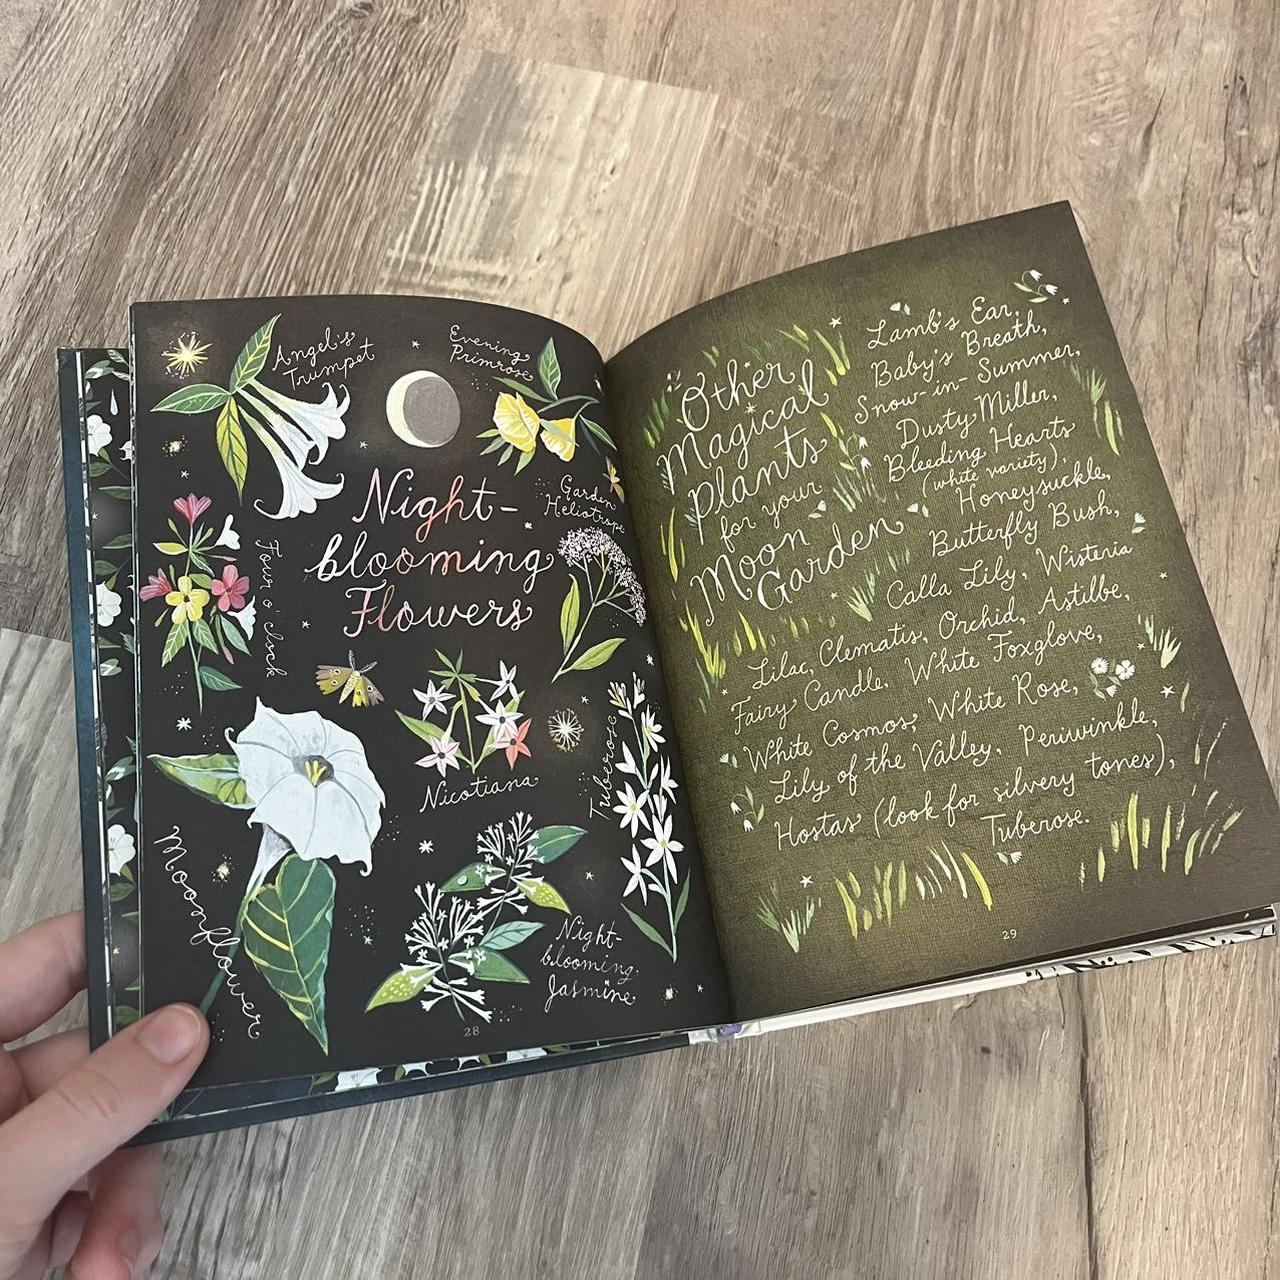 Angel's
Trumpet
Evening
Primrose
Night-
blooming
Flowers
Garden
Heliotrope
Four o' clock
Nicotiana
Tuberose
Moonflower
Night-
blooming
Jasmine
28
Other
Magical
Plants
for your
Moon
Garden
Lamb's Ear,
Baby's Breath,
Snow-in-Summer,
Dusty Miller,
Bleeding Hearts
(white variety),
Honeysuckle,
Butterfly Bush,
Calla Lily, Wisteria
Lilac, Clematis, Orchid, Astilbe,
Fairy Candle, White Foxglove,
White Cosmos, White Rose,
Lily of the Valley, Periwinkle,
Hostas (look for silvery tones),
Tuberose.
29